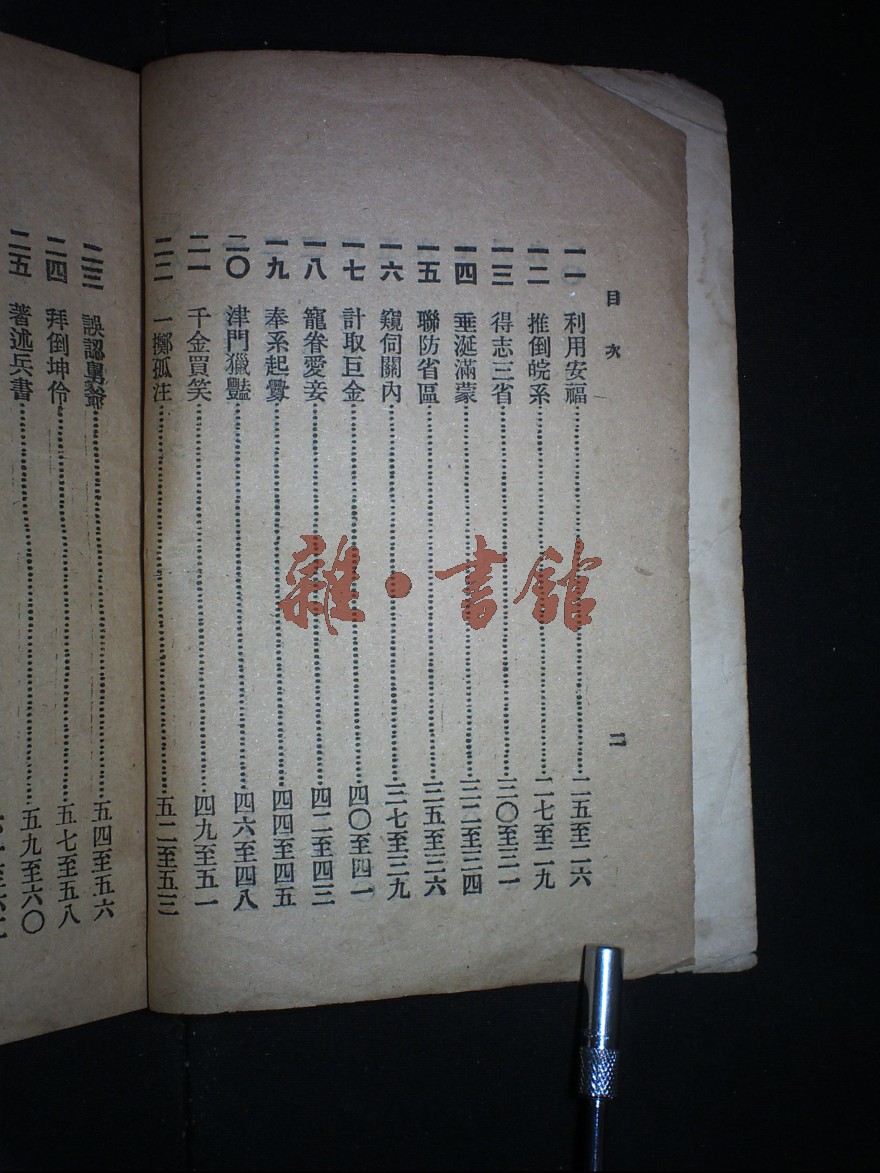 目次
二
一一 利用安福 二五至二六
一二 推倒皖系 二七至二九
一三 得志三省 三〇至三一
一四 垂涎滿蒙 三二至三四
一五 聯防省區 三五至三六
一六 窺伺關內 三七至三九
一七 計取巨金 四〇至四一
一八 寵眷愛妾 四二至四三
一九 奉系起釁 四四至四五
二〇 津門獵豔 四六至四八
二一 千金買笑 四九至五一
二二 一擲孤注 五二至五三
二三 誤認舅爺 五四至五六
二四 拜倒坤伶 五七至五八
二五 著述兵書 五九至六〇
雜·書館